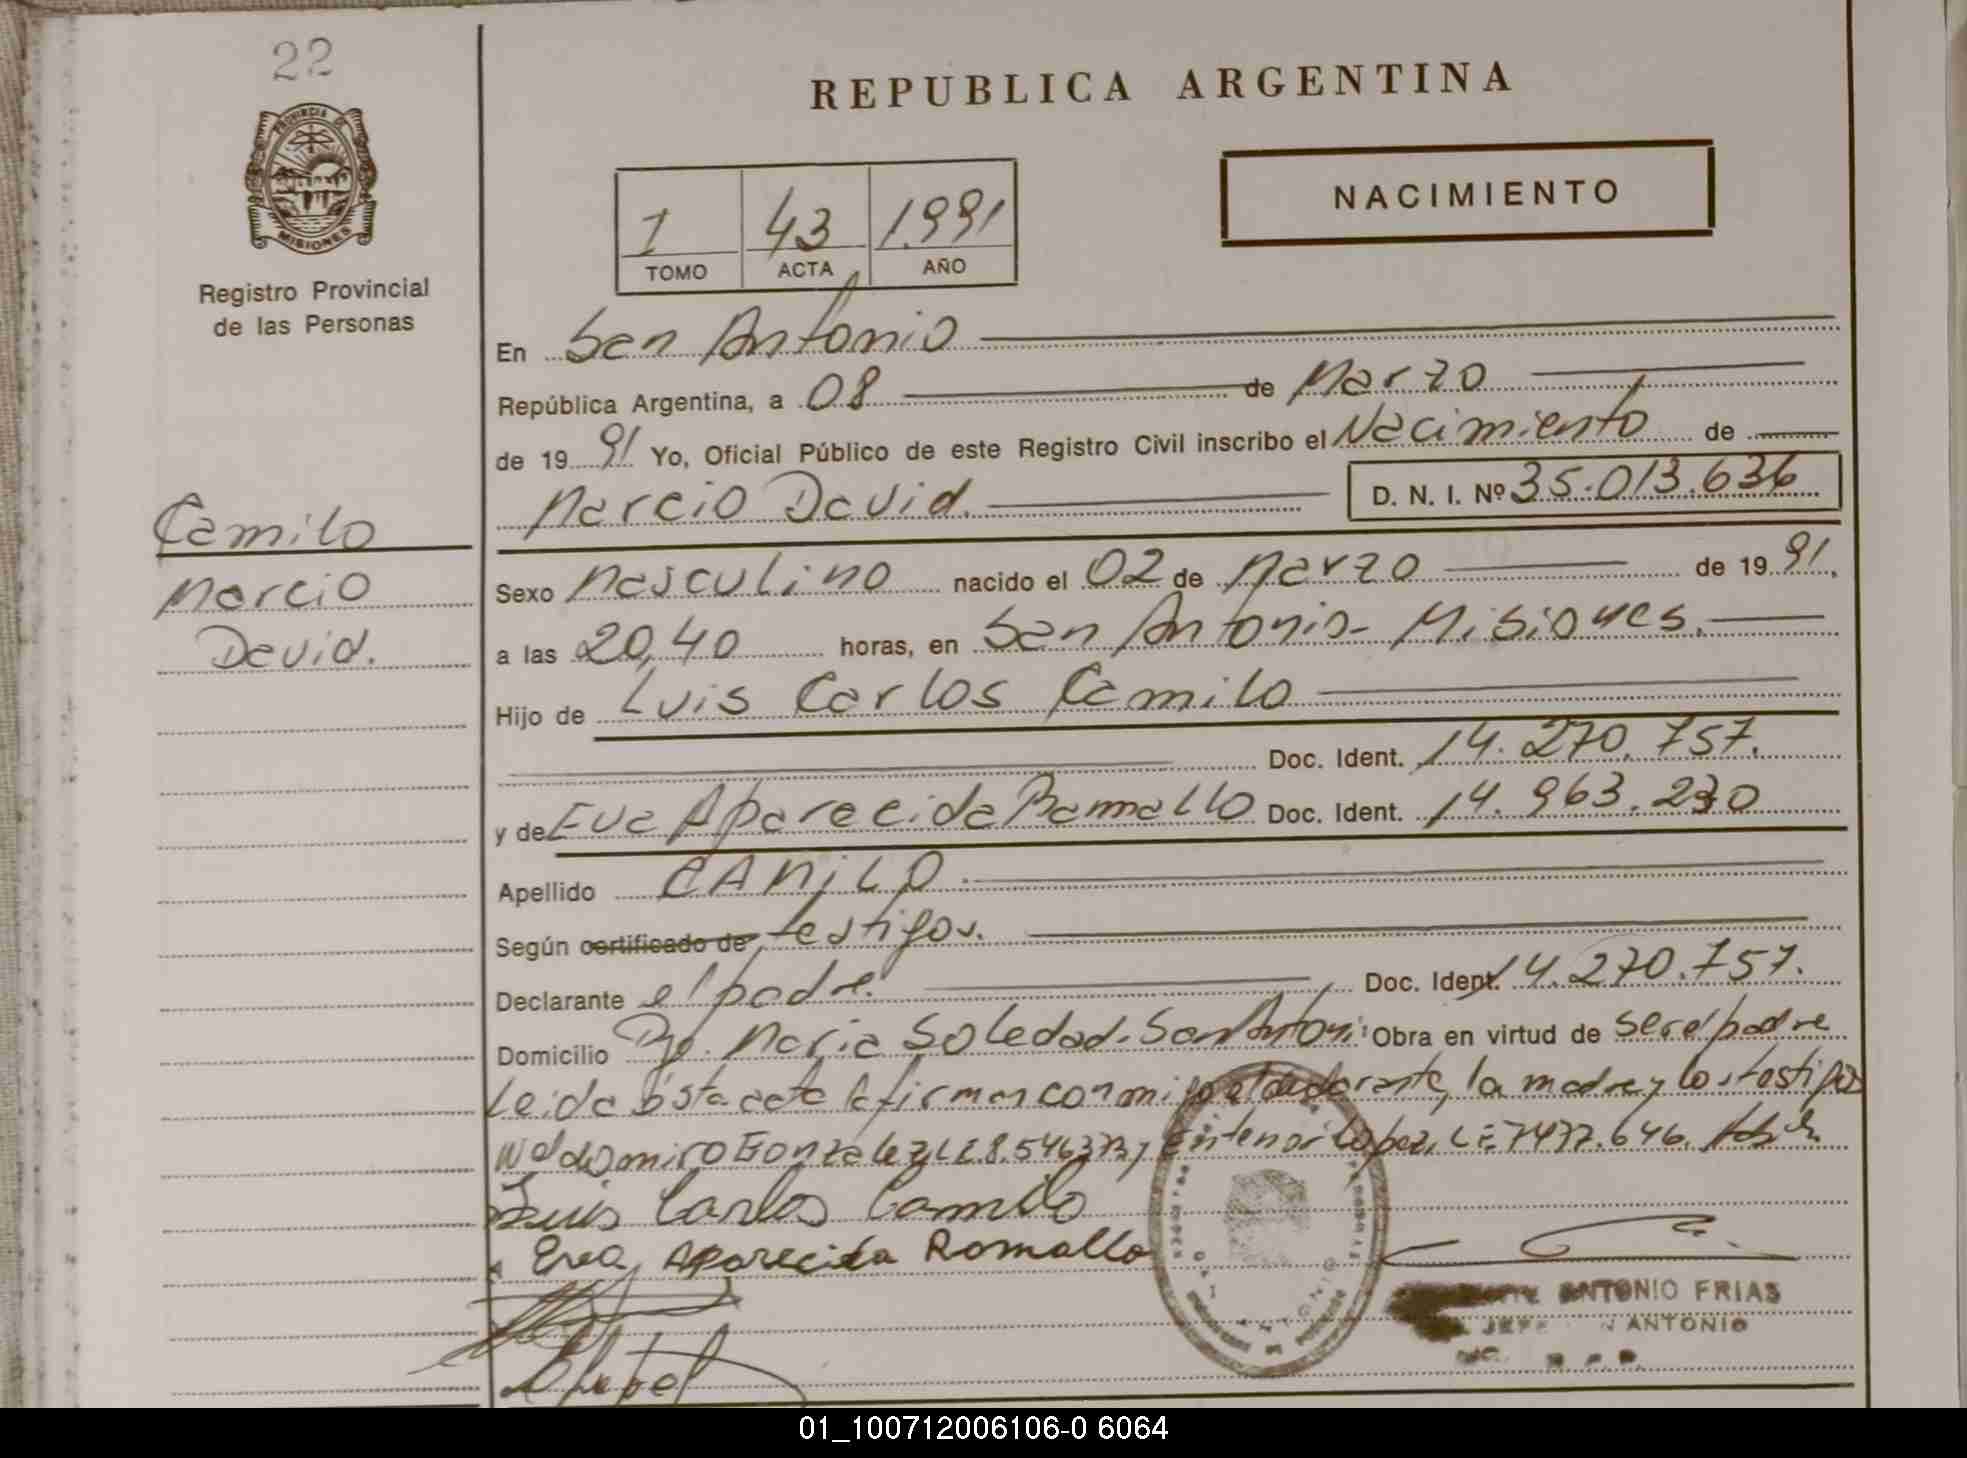 22
PROVINCIA DE
MISIONES
Registro Provincial
de las Personas
REPUBLICA ARGENTINA
NACIMIENTO
1 43 1.991
TOMO ACTA AÑO
En San Antonio
República Argentina, a 08 de Marzo
de 19 91 Yo, Oficial Público de este Registro Civil inscribo el Nacimiento de
Marcio David. D. N. I. Nº 35.013.636
Camilo
Marcio
David.
Sexo Masculino nacido el 02 de Marzo de 19 91.
a las 20,40 horas, en San Antonio - Misiones.
Hijo de Luis Carlos Camilo
Doc. Ident. 14.270.757.
y de Eva Aparecida Ramallo Doc. Ident. 14.963.230
Apellido CAMILO
Según certificado de testigos.
Declarante el padre. Doc. Ident. 14.270.757.
Domicilio María Soledad - San Antoni: Obra en virtud de ser el padre
Leida ésta acta la firman conmigo el declarante, la madre y los testigos
Gonzalez LE 8.546373 y Lopez, LE 7477.646.
Luis Carlos Camilo
Eva Aparecida Romallo
ANTONIO FRIAS
JEFE N ANTONIO
01_100712006106-0 6064